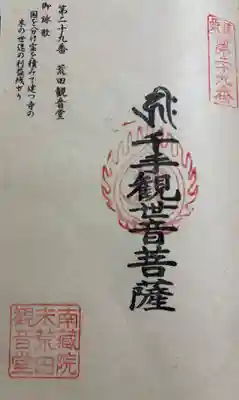 第二十九番
千手観世音菩薩
第二十九番　荒田観音堂
御詠歌
国を分け宝を積みて建つ寺の
末の世迄の利益残せり
南蔵院
荒田
観音堂